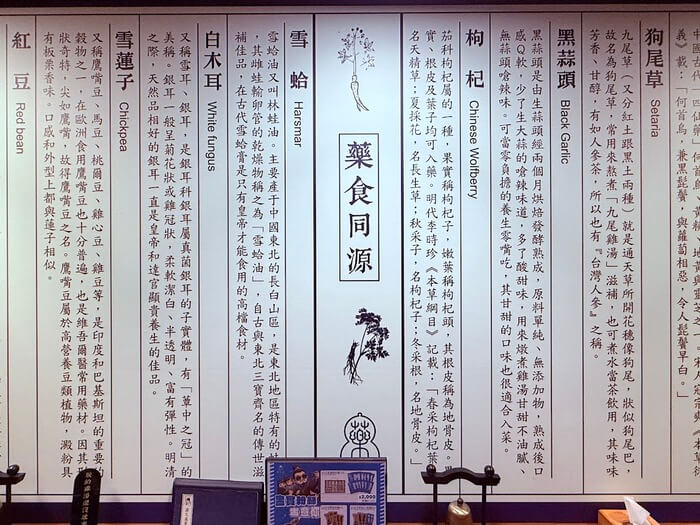 義》載：「何首烏，兼黑髭鬢，與蘿蔔相惡，令人髭鬢早白。」
狗尾草 Setaria
九尾草（又分紅土跟黑土兩種）就是通天草所開花穗像狗尾，狀似狗尾巴，
故名為狗尾草，常用來熬煮「九尾雞湯」滋補，也可煮水當茶飲用，其味
芳香、甘醇，有如人參茶，所以也有『台灣人參』之稱。
黑蒜頭 Black Garlic
黑蒜頭是由生蒜頭經兩個月烘焙發酵熟成，原料單純、無添加物，熟成後口
感Q軟，少了生大蒜的嗆辣味道，多了酸甜味，用來燉煮雞湯甘甜不油膩、
無蒜頭嗆辣味。可當零負擔的養生零嘴吃，其甘甜的口味也很適合入菜。
枸杞 Chinese Wolfberry
茄科枸杞屬的一種，果實稱枸杞子，嫩葉稱枸杞頭，其根皮稱為地骨皮。果
實、根皮及葉子均可入藥。明代李時珍《本草綱目》記載：「春采枸杞葉
名天精草；夏採花，名長生草；秋采子，名枸杞子；冬采根，名地骨皮。」
藥食同源
雪蛤 Harsmar
雪蛤油又叫林蛙油。主要產于中國東北的長白山區，是東北地區特有的
，其雌蛙輸卵管的乾燥物稱之為「雪蛤油」，自古與東北三寶齊名的傳世滋
補佳品，在古代雪蛤膏是只有皇帝才能食用的高檔食材。
白木耳 White fungus
又稱雪耳、銀耳，是銀耳科銀耳屬真菌銀耳的子實體，有「草中之冠」的
美稱。銀耳一般呈菊花狀或雞冠狀，柔軟潔白、半透明、富有彈性。明清
之際，天然品相好的銀耳一直是皇帝和達官顯貴養生的佳品。
雪蓮子 Chickpea
又稱鷹嘴豆、馬豆、桃爾豆、雞心豆、雞豆等，是印度和巴基斯坦的重要的
穀物之一，在歐洲食用鷹嘴豆也十分普遍，也是維吾爾醫常用藥材。因其形
狀奇特，尖如鷹嘴，故得鷹嘴豆之名。鷹嘴豆屬於高營養豆類植物，澱粉具
有板栗香味。口感和外型上都與蓮子相似。
紅豆 Red bean